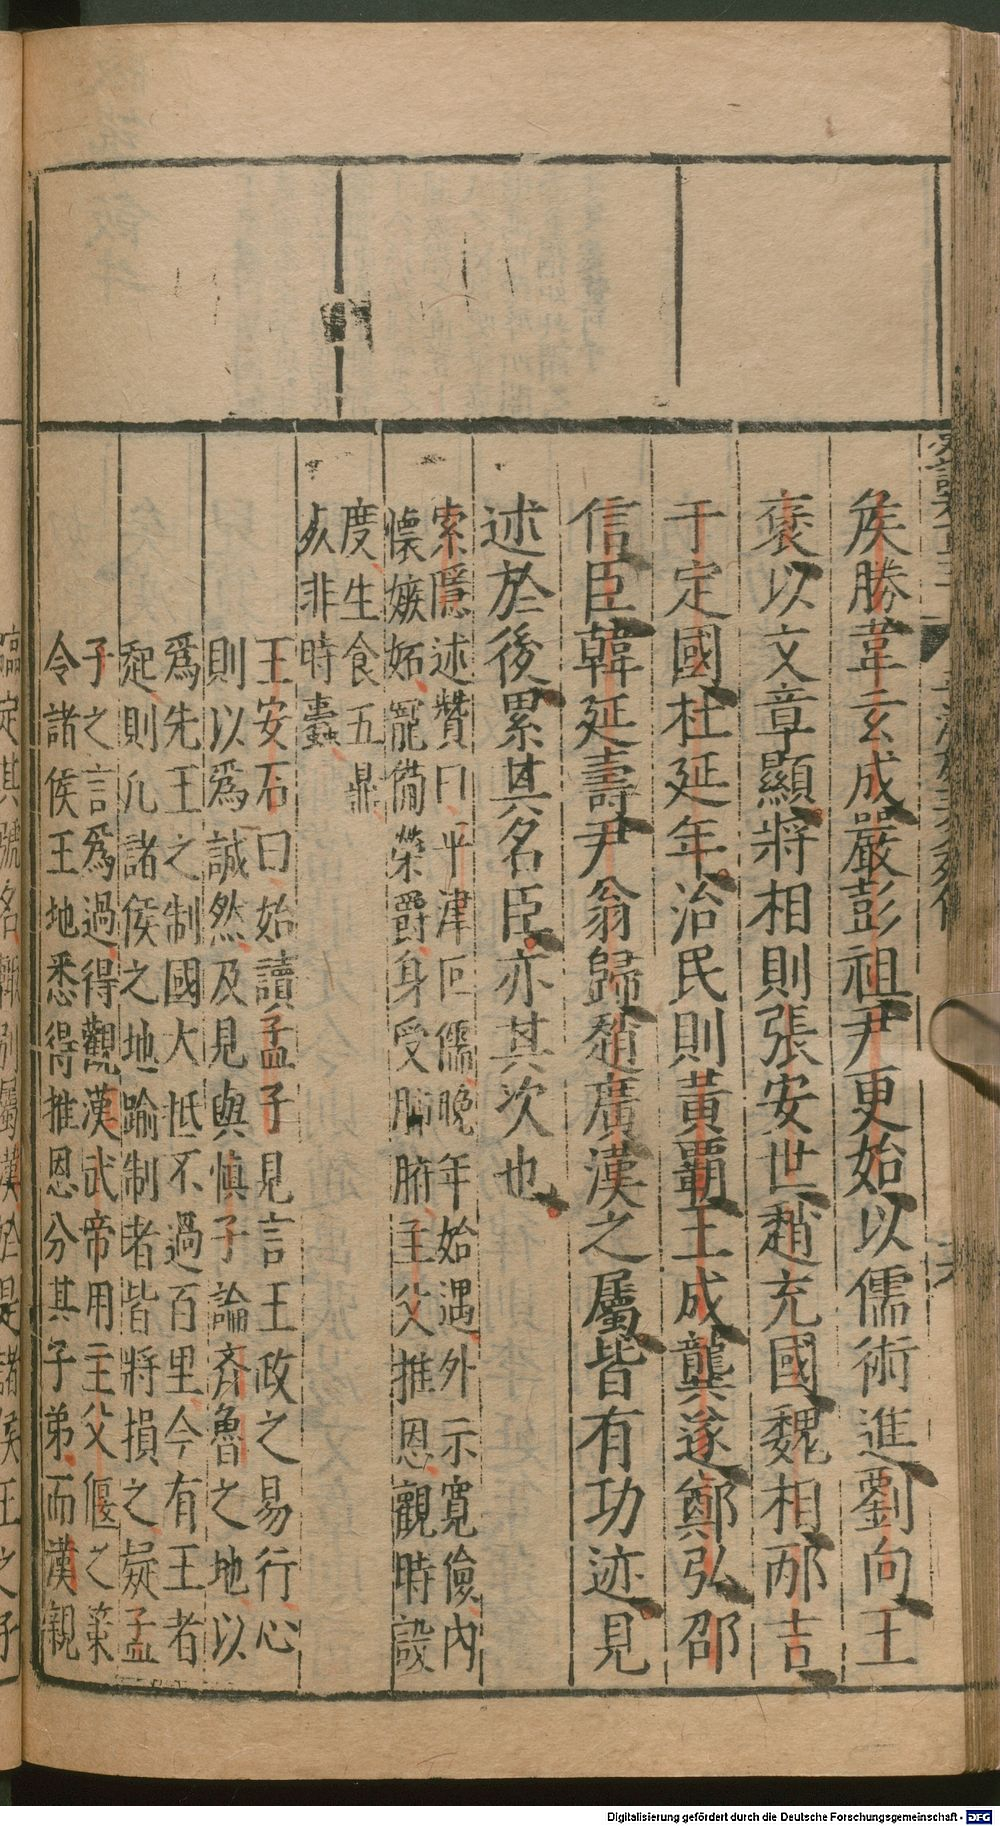 矦勝韋玄成嚴彭祖尹更始以儒術進劉向王
褒以文章顯將相則張安世趙充國魏相邴吉
于定國杜延年治民則黃覇王成龔遂鄭弘邵
信臣韓延壽尹翁歸趙廣漢之屬皆有功迹見
述於後累其名臣亦其次也
索隱述贊曰平津巨儒晚年始遇外示寬儉內
懷嫉妬寵備榮爵身受肺腑主父推恩觀時設
度生食五鼎
死非時蠹
王安石曰始讀孟子見言王政之易行心
則以爲誠然及見與慎子論齊魯之地以
爲先王之制國大抵不過百里今有王者
起則凡諸侯之地踰制者皆將損之疑孟
子之言爲過得觀漢武帝用主父偃之策
令諸侯王地悉得推恩分其子弟而漢親
臨定其號名輒別屬漢於是諸侯王之子
Digitalisierung gefördert durch die Deutsche Forschungsgemeinschaft - DFG